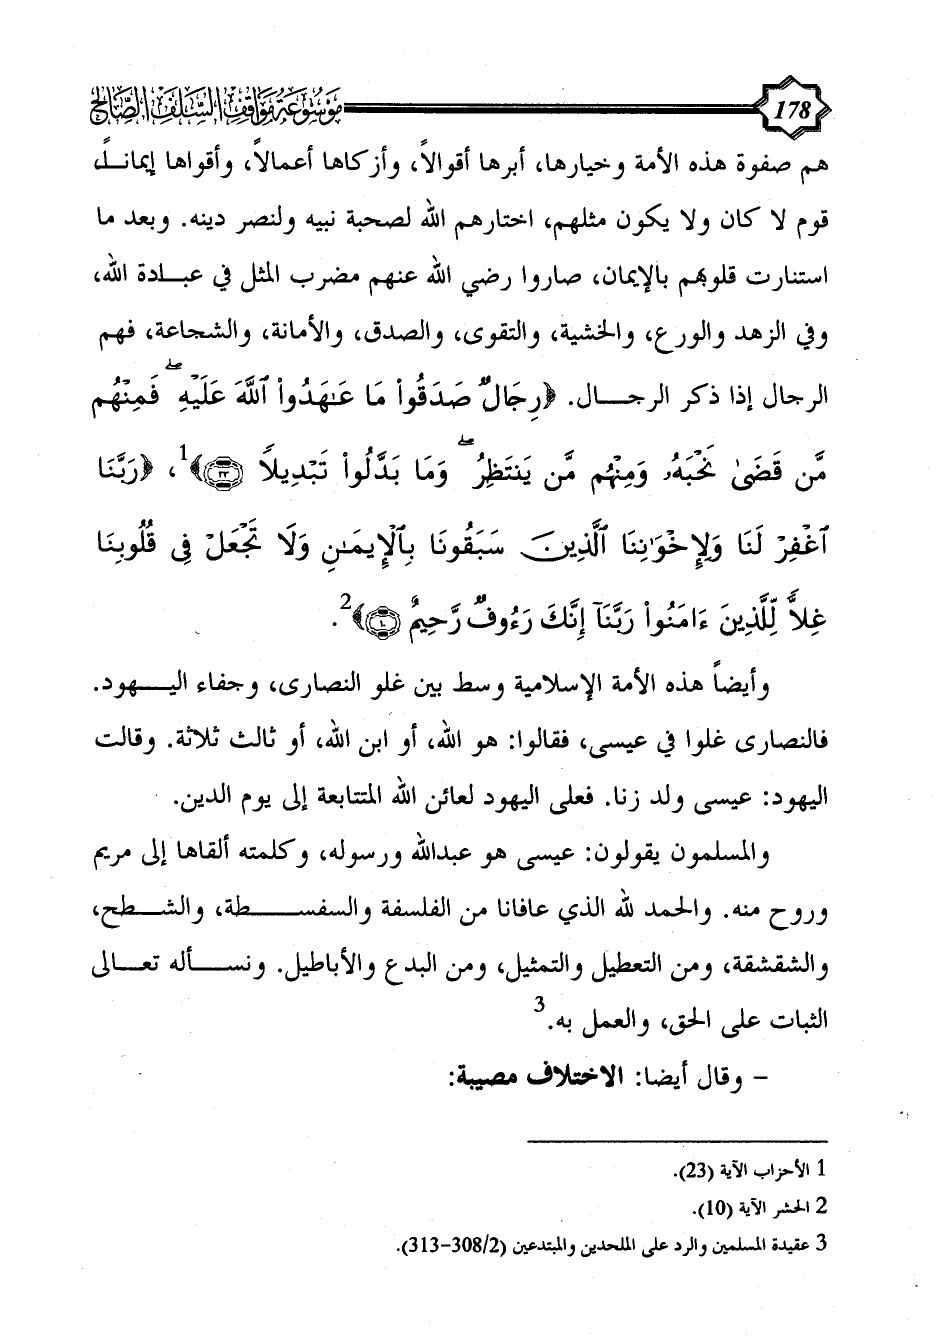 178 موسوعة مواقف السلف الصالح
هم صفوة هذه الأمة وخيارها، أبرها أقوالاً، وأزكاها أعمالاً، وأقواها إيماناً،
قوم لا كان ولا يكون مثلهم، اختارهم الله لصحبة نبيه ولنصر دينه. وبعد ما
استنارت قلوبهم بالإيمان، صاروا رضي الله عنهم مضرب المثل في عبادة الله،
وفي الزهد والورع، والخشية، والتقوى، والصدق، والأمانة، والشجاعة، فهم
الرجال إذا ذكر الرجال. ﴿رِجَالٌ صَدَقُوا۟ مَا عَـٰهَدُوا۟ ٱللَّهَ عَلَيْهِ ۖ فَمِنْهُم
مَّن قَضَىٰ نَحْبَهُۥ وَمِنْهُم مَّن يَنتَظِرُ ۖ وَمَا بَدَّلُوا۟ تَبْدِيلًا ﴿٢٣﴾﴾1، ﴿رَبَّنَا
ٱغْفِرْ لَنَا وَلِإِخْوَٰنِنَا ٱلَّذِينَ سَبَقُونَا بِٱلْإِيمَـٰنِ وَلَا تَجْعَلْ فِى قُلُوبِنَا
غِلًّا لِّلَّذِينَ ءَامَنُوا۟ رَبَّنَآ إِنَّكَ رَءُوفٌ رَّحِيمٌ ﴿١٠﴾﴾2.
وأيضاً هذه الأمة الإسلامية وسط بين غلو النصارى، وجفاء اليهود.
فالنصارى غلوا في عيسى، فقالوا: هو الله، أو ابن الله، أو ثالث ثلاثة. وقالت
اليهود: عيسى ولد زنا. فعلى اليهود لعائن الله المتتابعة إلى يوم الدين.
والمسلمون يقولون: عيسى هو عبدالله ورسوله، وكلمته ألقاها إلى مريم
وروح منه. والحمد لله الذي عافانا من الفلسفة والسفسطة، والشطح،
والشقشقة، ومن التعطيل والتمثيل، ومن البدع والأباطيل. ونسأله تعالى
الثبات على الحق، والعمل به.3
– وقال أيضا: الاختلاف مصيبة:
1 الأحزاب الآية (23).
2 الحشر الآية (10).
3 عقيدة المسلمين والرد على الملحدين والمبتدعين (308/2-313).